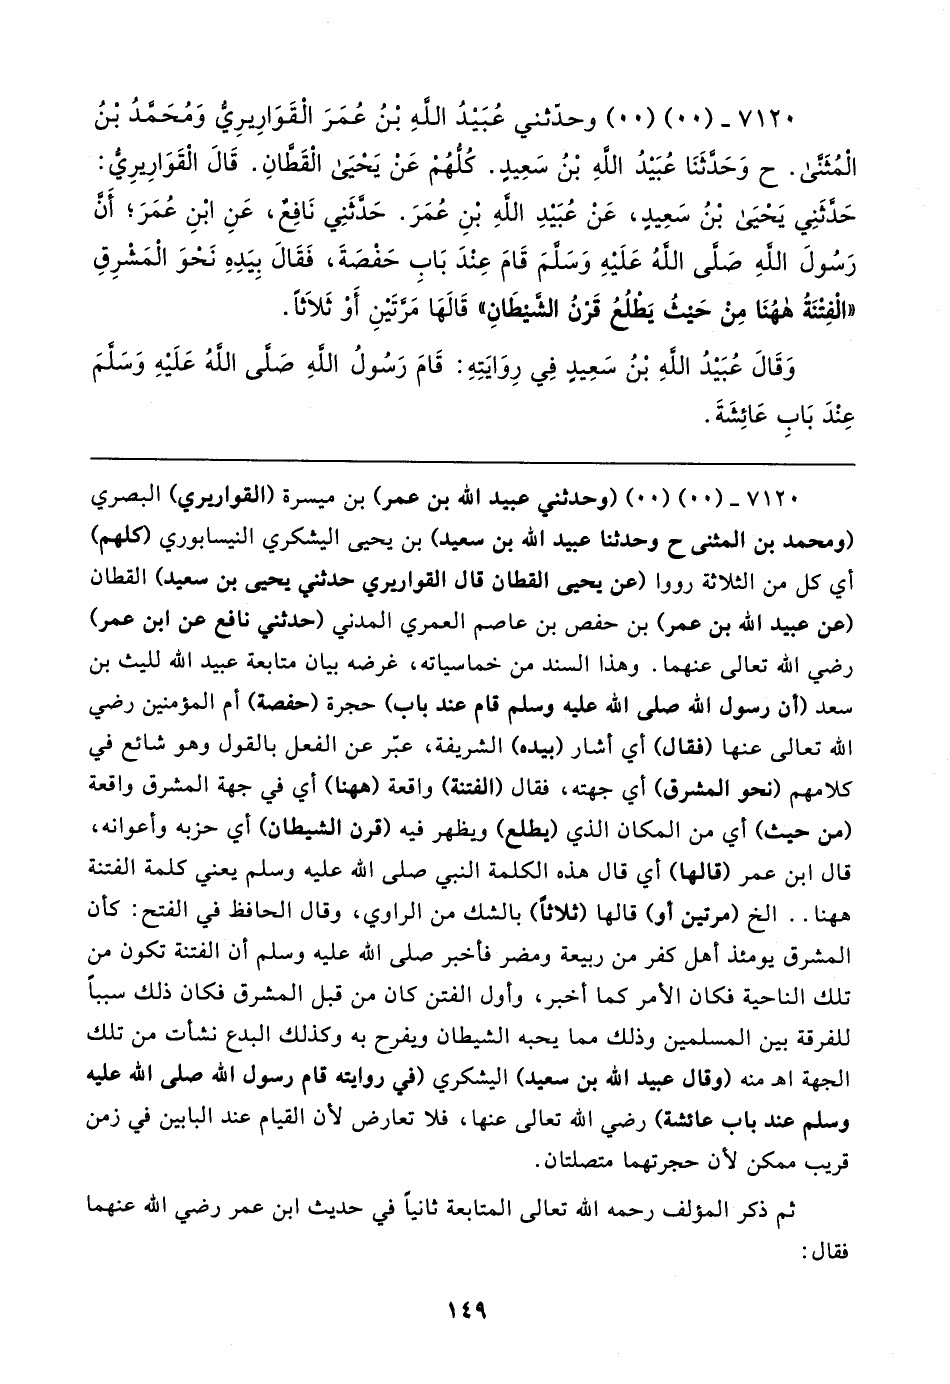 ٧١٢٠ - (٠٠) (٠٠) وحدّثني عُبَيْدُ اللَّهِ بْنُ عُمَرَ الْقَوَارِيرِيُّ وَمُحَمَّدُ بْنُ
الْمُثَنَّىٰ. ح وَحَدَّثَنَا عُبَيْدُ اللَّهِ بْنُ سَعِيدٍ. كُلُّهُمْ عَنْ يَحْيَىٰ الْقَطَّانِ. قَالَ الْقَوَارِيرِيُّ:
حَدَّثَنِي يَحْيَىٰ بْنُ سَعِيدٍ، عَنْ عُبَيْدِ اللَّهِ بْنِ عُمَرَ. حَدَّثَنِي نَافِعٌ، عَنِ ابْنِ عُمَرَ؛ أَنَّ
رَسُولَ اللَّهِ صَلَّى اللَّهُ عَلَيْهِ وَسَلَّمَ قَامَ عِنْدَ بَابِ حَفْصَةَ، فَقَالَ بِيَدِهِ نَحْوَ الْمَشْرِقِ
«الْفِتْنَةُ هٰهُنَا مِنْ حَيْثُ يَطْلُعُ قَرْنُ الشَّيْطَانِ» قَالَهَا مَرَّتَيْنِ أَوْ ثَلَاثاً.
وَقَالَ عُبَيْدُ اللَّهِ بْنُ سَعِيدٍ فِي رِوَايَتِهِ: قَامَ رَسُولُ اللَّهِ صَلَّى اللَّهُ عَلَيْهِ وَسَلَّمَ
عِنْدَ بَابِ عَائِشَةَ.
٧١٢٠ - (٠٠) (٠٠) (وحدثني عبيد الله بن عمر) بن ميسرة (القواريري) البصري
(ومحمد بن المثنى ح وحدثنا عبيد الله بن سعيد) بن يحيى اليشكري النيسابوري (كلهم)
أي كل من الثلاثة رووا (عن يحيى القطان قال القواريري حدثني يحيى بن سعيد) القطان
(عن عبيد الله بن عمر) بن حفص بن عاصم العمري المدني (حدثني نافع عن ابن عمر)
رضي الله تعالى عنهما. وهذا السند من خماسياته، غرضه بيان متابعة عبيد الله لليث بن
سعد (أن رسول الله صلى الله عليه وسلم قام عند باب) حجرة (حفصة) أم المؤمنين رضي
الله تعالى عنها (فقال) أي أشار (بيده) الشريفة، عبّر عن الفعل بالقول وهو شائع في
كلامهم (نحو المشرق) أي جهته، فقال (الفتنة) واقعة (ههنا) أي في جهة المشرق واقعة
(من حيث) أي من المكان الذي (يطلع) ويظهر فيه (قرن الشيطان) أي حزبه وأعوانه،
قال ابن عمر (قالها) أي قال هذه الكلمة النبي صلى الله عليه وسلم يعني كلمة الفتنة
ههنا.. الخ (مرتين أو) قالها (ثلاثاً) بالشك من الراوي، وقال الحافظ في الفتح: كأن
المشرق يومئذ أهل كفر من ربيعة ومضر فأخبر صلى الله عليه وسلم أن الفتنة تكون من
تلك الناحية فكان الأمر كما أخبر، وأول الفتن كان من قبل المشرق فكان ذلك سبباً
للفرقة بين المسلمين وذلك مما يحبه الشيطان ويفرح به وكذلك البدع نشأت من تلك
الجهة اهـ منه (وقال عبيد الله بن سعيد) اليشكري (في روايته قام رسول الله صلى الله عليه
وسلم عند باب عائشة) رضي الله تعالى عنها، فلا تعارض لأن القيام عند البابين في زمن
قريب ممكن لأن حجرتهما متصلتان.
ثم ذكر المؤلف رحمه الله تعالى المتابعة ثانياً في حديث ابن عمر رضي الله عنهما
فقال:
١٤٩